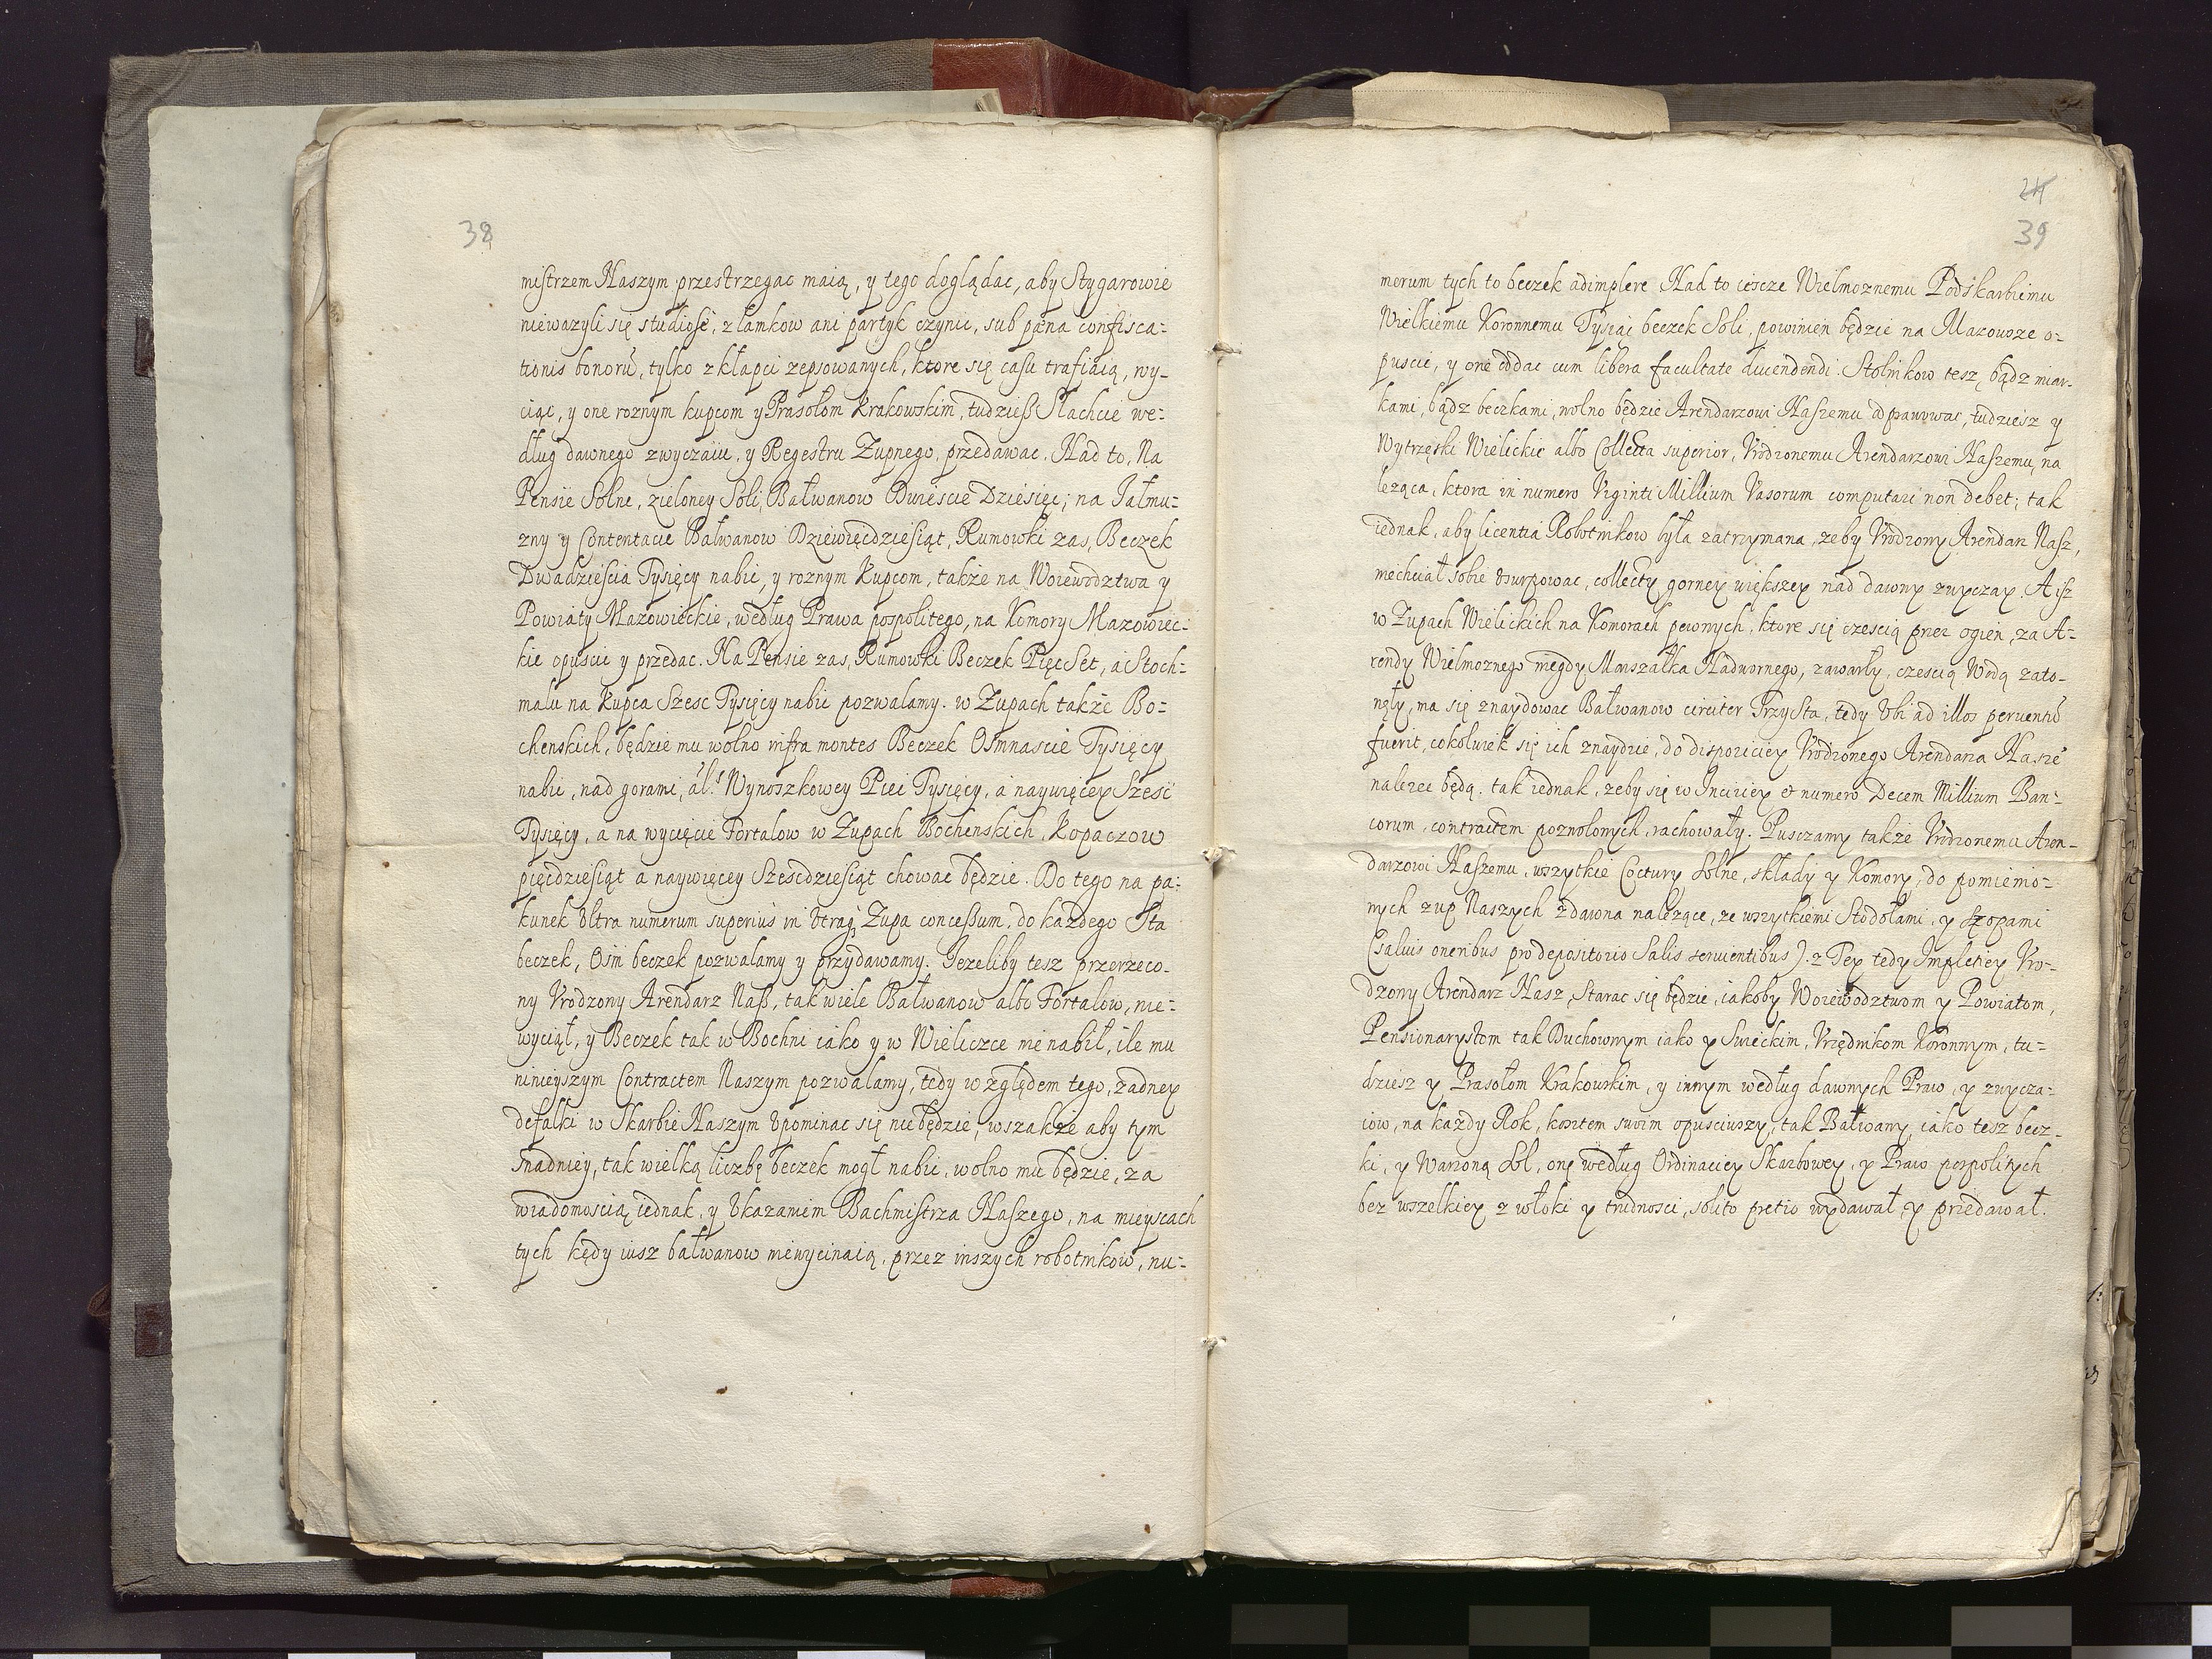 38
mistrzem Naszym przestrzegac maią, y tego doglądac, aby Stygarowie
niewazyli się studiosè, z lamkow ani partyk czynic, sub pæna confisca-
tionis bonorũ, tylko z kłapci zepsowanych, ktore się casu trafiaią, wy-
ciąc, y one roznym kupcom y Prasołom Krakowskim, tudziesz Slachcie we-
dług dawnego zwyczaiu, y Regestru Zupnego, przedawac. Nad to, Na
Pensie Solne, zieloney Soli, Bałwanow Dwiescie Dziesięc; na Jałmu-
zny y Contentacie Bałwanow Dziewięcdziesiąt, Rumowki zas, Beczek
Dwadziescia Tysięcy nabic, y roznym Kupcom, także na Woiewodztwa y
Powiaty Mazowieckie, według Prawa pospolitego, na Komory Mazowiec-
kie opuscic y przedac. Na Pensie zas, Rumowki Beczek Pięc Set, a Stoch-
malu na Kupca Szesc Tysięcy nabic pozwalamy. w Zupach także Bo-
chenskich, będzie mu wolno infra montes Beczek Osmnascie Tysięcy
nabic, nad gorami, ál.ˢ Wynoszkowey Pieć Tysięcy, a naywięcey Szesć
Tysięcy, a na wycięcie Fortalow w Zupach Bochenskich, Kopaczow
pięcdziesiąt a naywięcey Szescdziesiąt chowac będzie. Do tego na pa-
kunek Vltra numerum superius in Vtraq; Zupa concessum, do każdego Sta
beczek, Ośm beczek pozwalamy y przydawamy. Jezeliby tesz przerzeco-
ny Vrodzony Arendarz Nasz, tak wiele Bałwanow albo Fortalow, nie-
wyciął, y Beczek tak w Bochni iako y w Wieliczce nie nabił, ile mu
ninieyszym Contractem Naszym pozwalamy, tedy względem tego, żadney
defalki w Skarbie Naszym Vpominac się nie będzie, wszakże aby tym
snadniey, tak wielką liczbę beczek mogł nabic, wolno mu będzie, za
wiadomoscią iednak, y Vkazaniem Bachmistrza Naszego, na mieyscach
tych kędy iusz bałwanow niewycinaią, przez inszych robotnikow, nu-
39
merum tych to beczek adimplere Nad to iescze Wielmoznemu Podskarbiemu
Wielkiemu Koronnemu Tysiąc beczek Soli, powinien będzie na Mazowsze o-
puscic, y one oddac cum libera facultate diuendendi. Stolnikow tesz, bądz miar-
kami, bądz beczkami, wolno będzie Arendarzowi Naszemu odprawowac, tudziesz y
Wytrzęski Wielickie albo Collecta superior, Vrodzonemu Arendarzowi Naszemu na
leząca, ktora in numero Viginti Millium Vasorum computari non debet; tak
iednak, aby licentia Robotnikow była zatrzymana, zeby Vrodzony Arendarz Nasz,
niechciał sobie Vsurpowac, collecty gorney większey nad dawny zwyczay. A isz
w Zupach Wielickich na Komorach pewnych, ktore się czescią przez ogien, za A-
rendy Wielmoznego niegdy Marszałka Nadwornego, zawarły, czescią Wodą zato-
nęły, ma się znaydowac Bałwanow circiter Trzysta, tedy Vbi ad illos peruentũ
fuerit, cokolwiek się ich znaydzie, do disposiciey Vrodzonego Arendarza Nasze°
nalezec będą, tak iednak, zeby się w Inciziey et numero Decem Millium Ban-
corum, contractem pozwolonych, rachowały. Pusczamy także Vrodzonemu Aren-
darzowi Naszemu, wszytkie Coctury Solne, składy y Komory, do pomienio-
nych zup Naszych zdawna nalezące, ze wszytkiemi Stodołami, y szopami
(saluis oneribus pro depositorio Salis seruientibus). z Tey tedy Impletiey Vro-
dzony Arendarz Nasz, Starac się będzie, iakoby Woiewodztwom y Powiatom,
Pensionarystom tak Duchownym iako y Swieckim, Vrzędnikom Koronnym, tu-
dziesz y Prasołom Krakowskim, y innym według dawnych Praw, y zwycza-
iow, na każdy Rok, kosztem swoim opusciwszy, tak Bałwany, iako tesz becz-
ki, y Warzoną Sol, onę według Ordinaciey Skarbowey, y Praw pospolitych
bez wszelkiey z włoki y trudnosci, solito pretio wydawał, y przedawał.